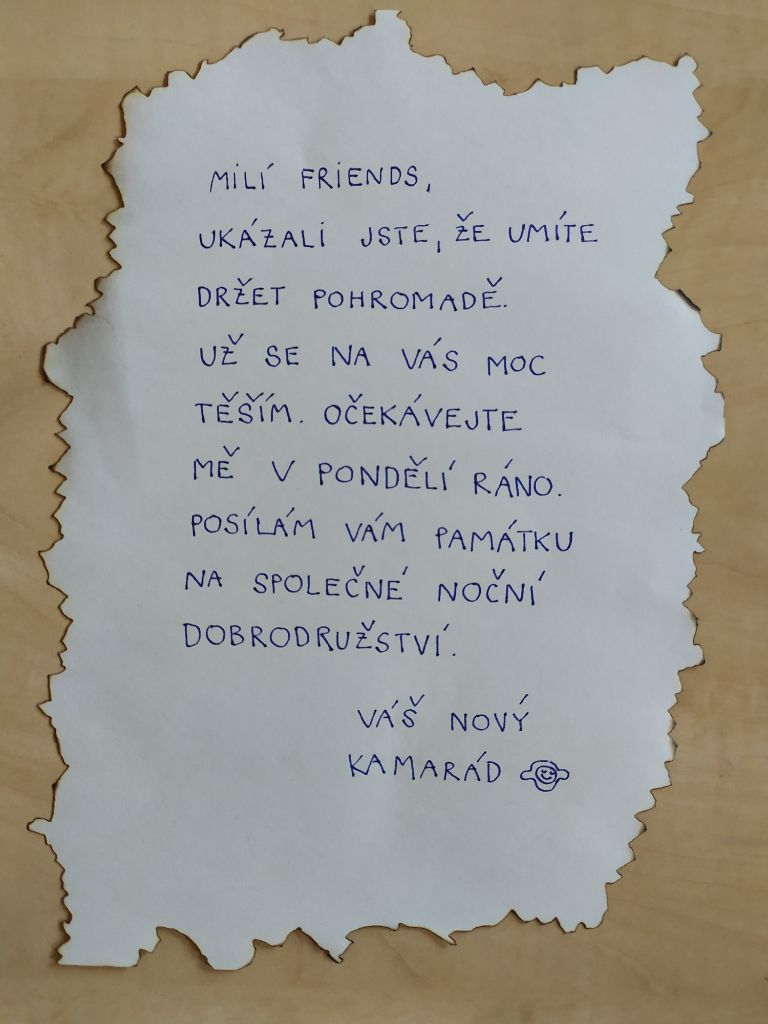 MILÍ FRIENDS,
UKÁZALI JSTE, ŽE UMÍTE
DRŽET POHROMADĚ.
UŽ SE NA VÁS MOC
TĚŠÍM. OČEKÁVEJTE
MĚ V PONDĚLÍ RÁNO.
POSÍLÁM VÁM PAMÁTKU
NA SPOLEČNÉ NOČNÍ
DOBRODRUŽSTVÍ.
VÁŠ NOVÝ
KAMARÁD